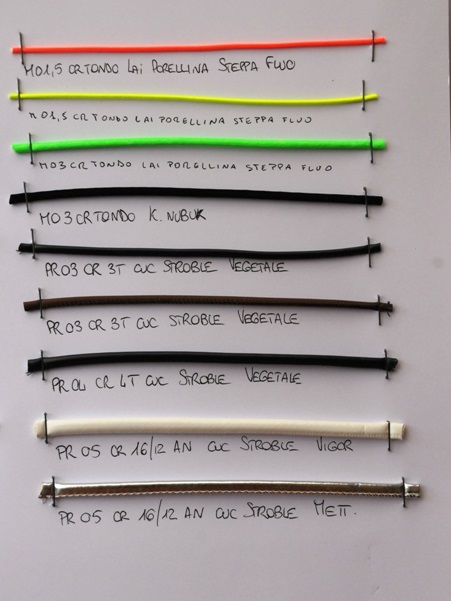 M01,5 CRTONDO LAI PORELLINA STEPPA FLUO
M01,5 CRTONDO LAI PORELLINA STEPPA FLUO
M03 CRTONDO LAI PORELLINA STEPPA FLUO
M03 CRTONDO K. NUBUK
PR03 CR 3T CUC STROBLE VEGETALE
PR03 CR 3T CUC STROBLE VEGETALE
PR04 CR 4T CUC STROBLE VEGETALE
PR 05 CR 16/12 AN CUC STROBLE VIGOR
PR 05 CR 16/12 AN CUC STROBLE METT.